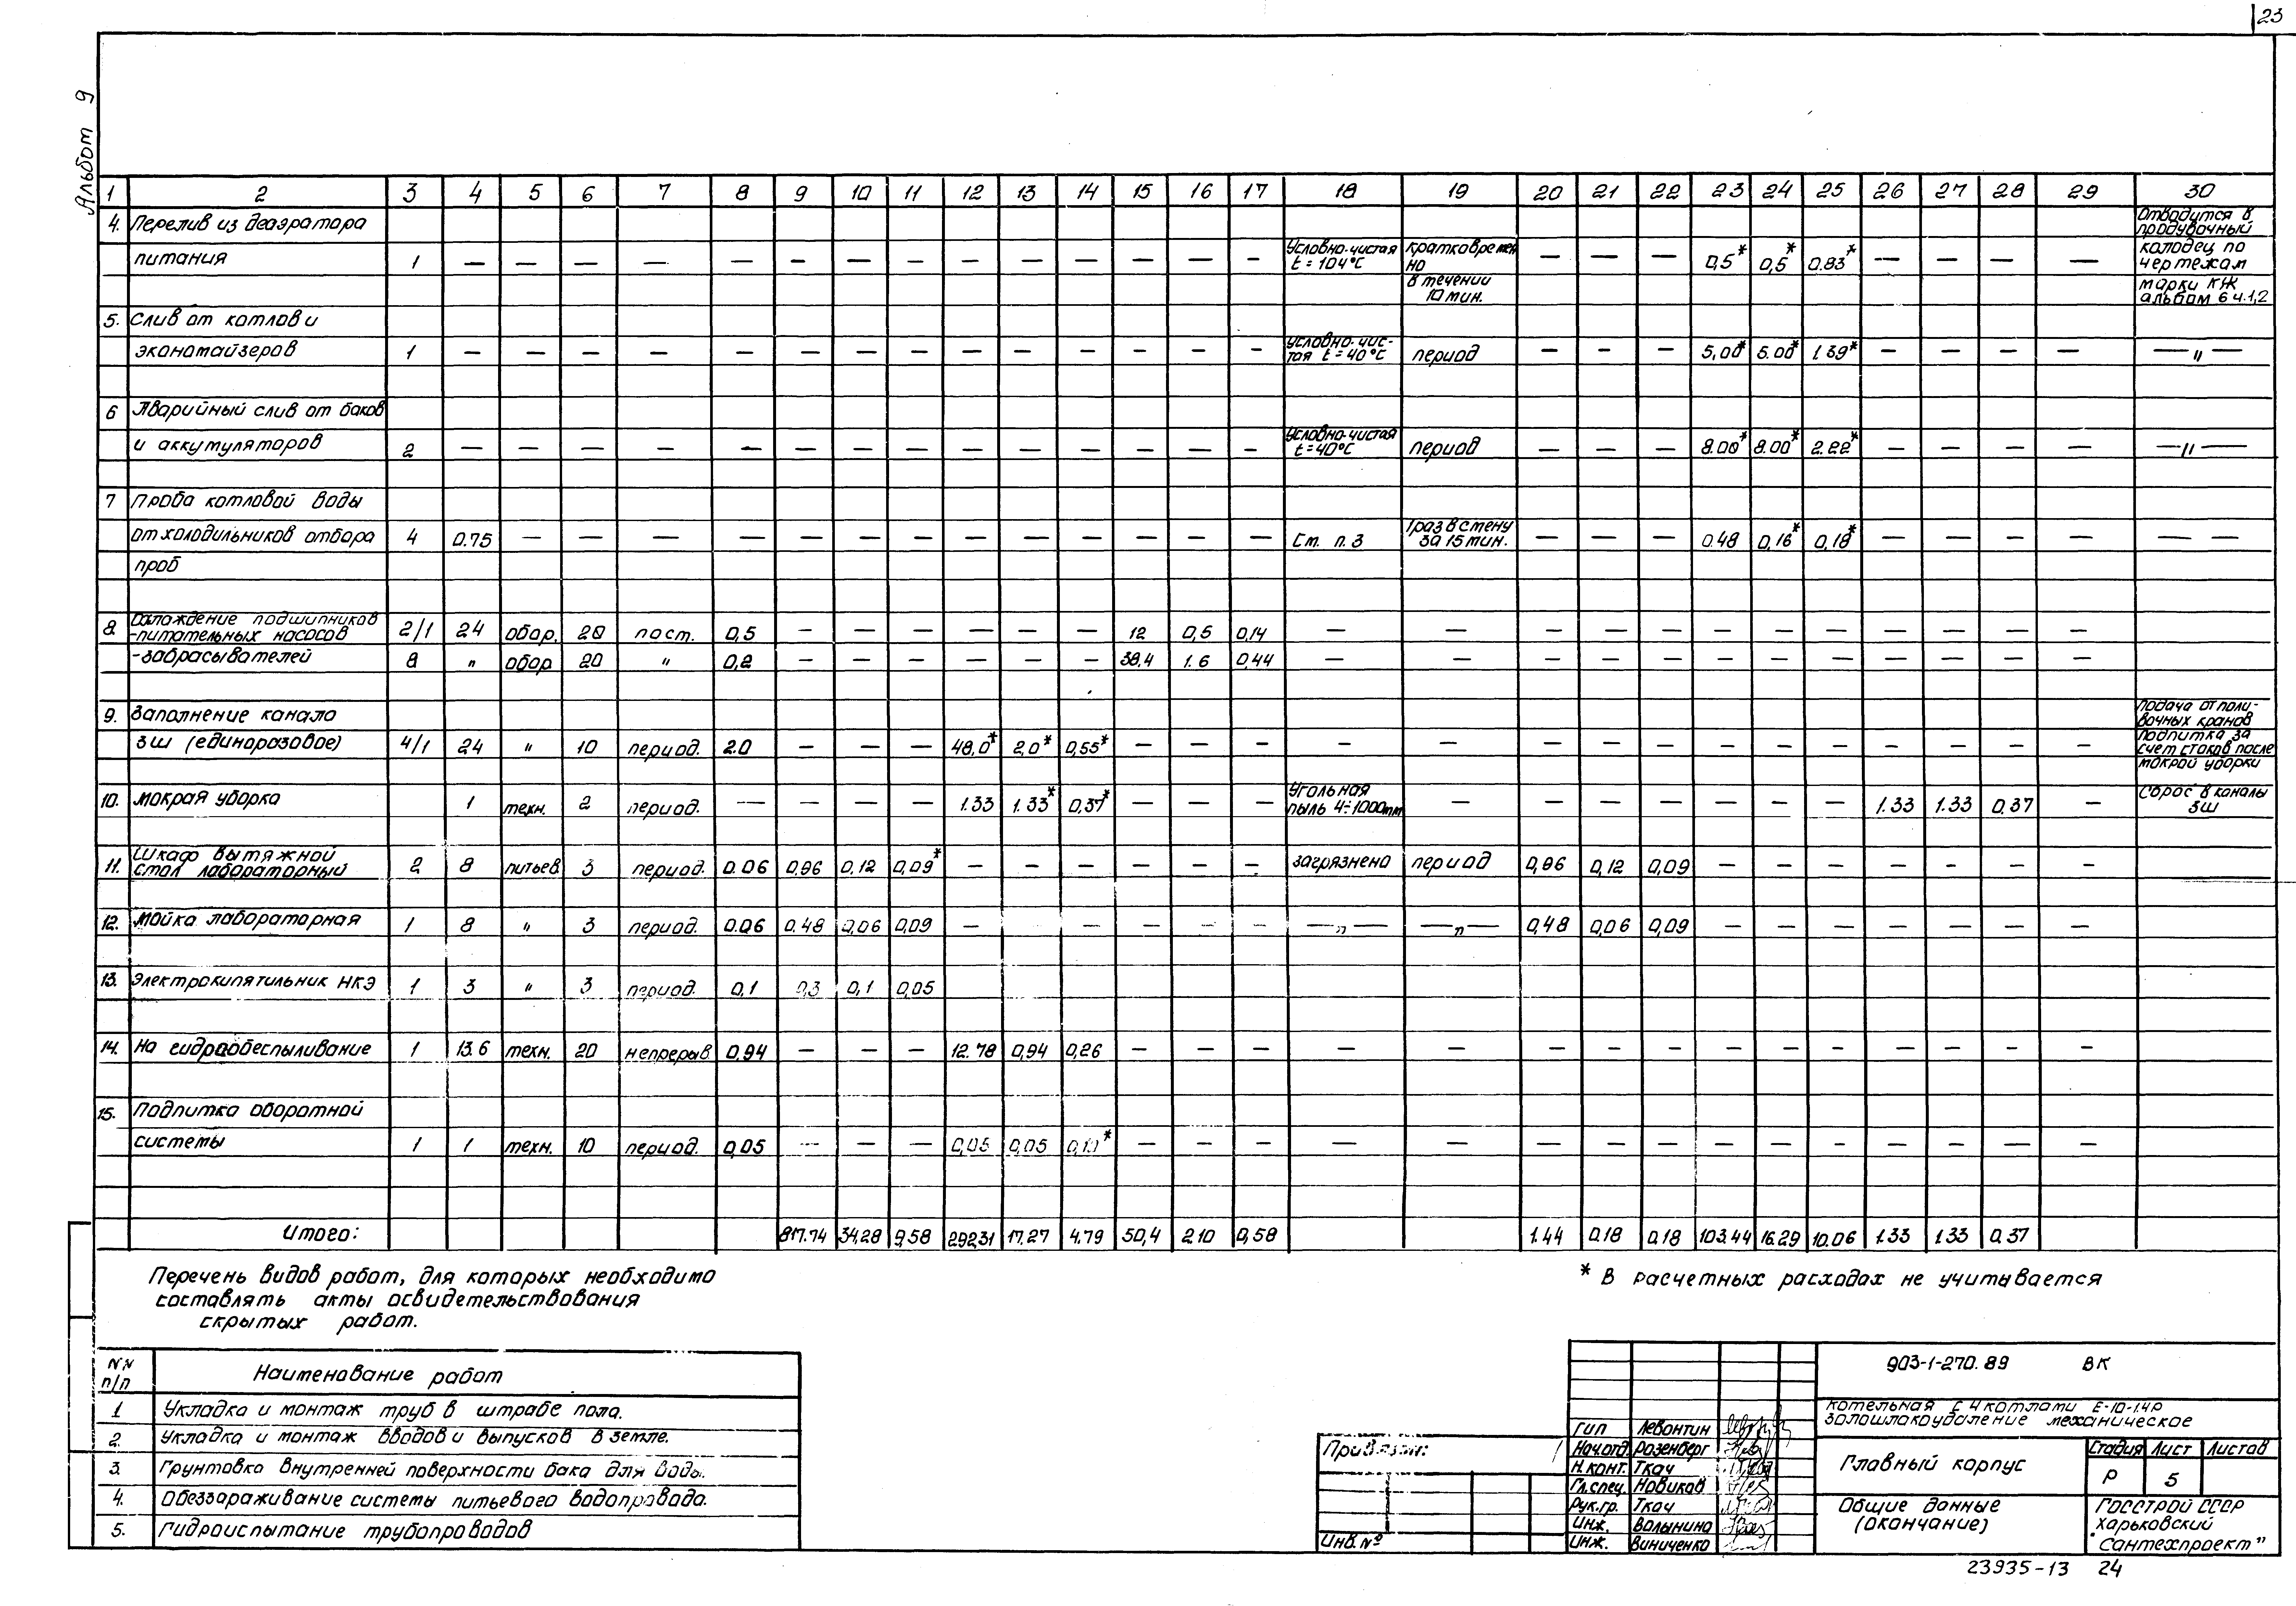 23
Альбом 9
1 2 3 4 5 6 7 8 9 10 11 12 13 14 15 16 17 18 19 20 21 22 23 24 25 26 27 28 29 30
4. Перелив из деаэратора Отводится в продувочный
питания 1 — — — — — — — — — — — — — — Условно-чистая t = 104°С кратковремен но — — — 0,5* 0,5* 0.83* — — — — колодец по чертежам
в течении 10 мин. марки КЖ альбом 6 ч.1,2
5. Слив от котлов и
экономайзеров 1 — — — — — — — — — — — — — — условно-чис- тая t = 40°С период — — — 5,00* 5.00* 1.39* — — — — — " —
6 Аварийный слив от баков
и аккумуляторов 2 — — — — — — — — — — — — — — Условно-чистая t = 40°С период — — — 8.00* 8.00* 2.22* — — — — — " —
7 Проба котловой воды
от холодильников отбора 4 0.75 — — — — — — — — — — — — — См. п. 3 1 раз в смену за 15 мин. — — — 0.48 0,16* 0,18* — — — — — —
проб
8. Охлаждение подшипников
-питательных насосов 2/1 24 обор. 20 пост. 0,5 — — — — — — 12 0,5 0,14 — — — — — — — — — — — —
-забрасывателей 8 " обор 20 " 0,2 — — — — — — 38,4 1.6 0,44 — — — — — — — — — — — —
9. Заполнение канала Подача от поли- вочных кранов
ЗШ (единоразовое) 4/1 24 " 10 период. 2.0 — — — 48,0* 2.0* 0,55* — — — — — — — — — — — — — — — подпитка за счет стоков после
мокрой уборки
10. Мокрая уборка 1 техн. 2 период. — — — — 1.33 1.33* 0,37* — — — Угольная пыль 4÷1000mm — — — — — — — 1.33 1.33 0.37 — Сброс в каналы ЗШ
11. Шкаф вытяжной
стол лабораторный 2 8 питьев. 3 период. 0.06 0,96 0,12 0,09* — — — — — — загрязнено период 0,96 0,12 0,09 — — — — — — —
12. Мойка лабораторная 1 8 " 3 период. 0.06 0.48 0,06 0,09 — — — — — — — " — — " — 0,48 0,06 0,09 — — — — — — —
13. Электрокипятильник НКЭ 1 3 " 3 период. 0,1 0,3 0,1 0,05
14. На гидрообеспыливание 1 13.6 техн. 20 непрерыв 0,94 — — — 12.78 0,94 0,26 — — — — — — — — — — — — — — —
15. Подпитка оборотной
системы 1 1 техн. 10 период. 0,05 — — — 0,05 0,05 — — — — — — — — — — — — — — —
Итого: 817.74 34,28 9,58 292,31 17.27 4.79 50,4 2.10 0,58 1.44 0.18 0.18 103.44 16.29 10.06 1.33 1.33 0.37
Перечень видов работ, для которых необходимо
составлять акты освидетельствования
скрытых работ.
* В расчетных расходах не учитывается
NN п/п Наименование работ
1 Укладка и монтаж труб в штрабе пола.
2. Укладка и монтаж вводов и выпусков в земле.
3. Грунтовка внутренней поверхности бака для воды.
4. Обеззараживание системы питьевого водопровода.
5. Гидроиспытание трубопроводов
Привязан:
Инв. №
ГИП Левонтин
Нач.отд. Розенберг
Н.конт. Ткач
Гл.спец. Новиков
Рук.гр. Ткач
Инж. Волынина
Инж. Виниченко
903-1-270.89 ВК
Котельная с 4 котлами Е-10-1.4Р
Золошлакоудаление механическое
Главный корпус
Стадия Лист Листов
Р 5
Общие данные
(окончание)
Госстрой СССР
Харьковский
"Сантехпроект"
23935-13 24